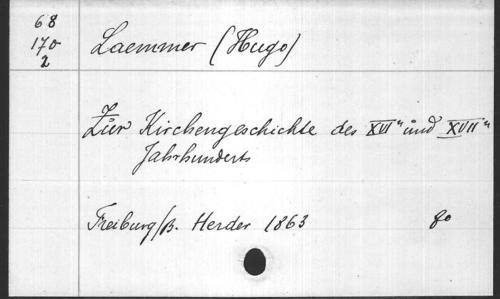 68
170
2
Laemmer (Hugo)
Zur Kirchengeschichte des XVI" und XVII"
Jahrhunderts
Freiburg/B. Herder 1863 8o